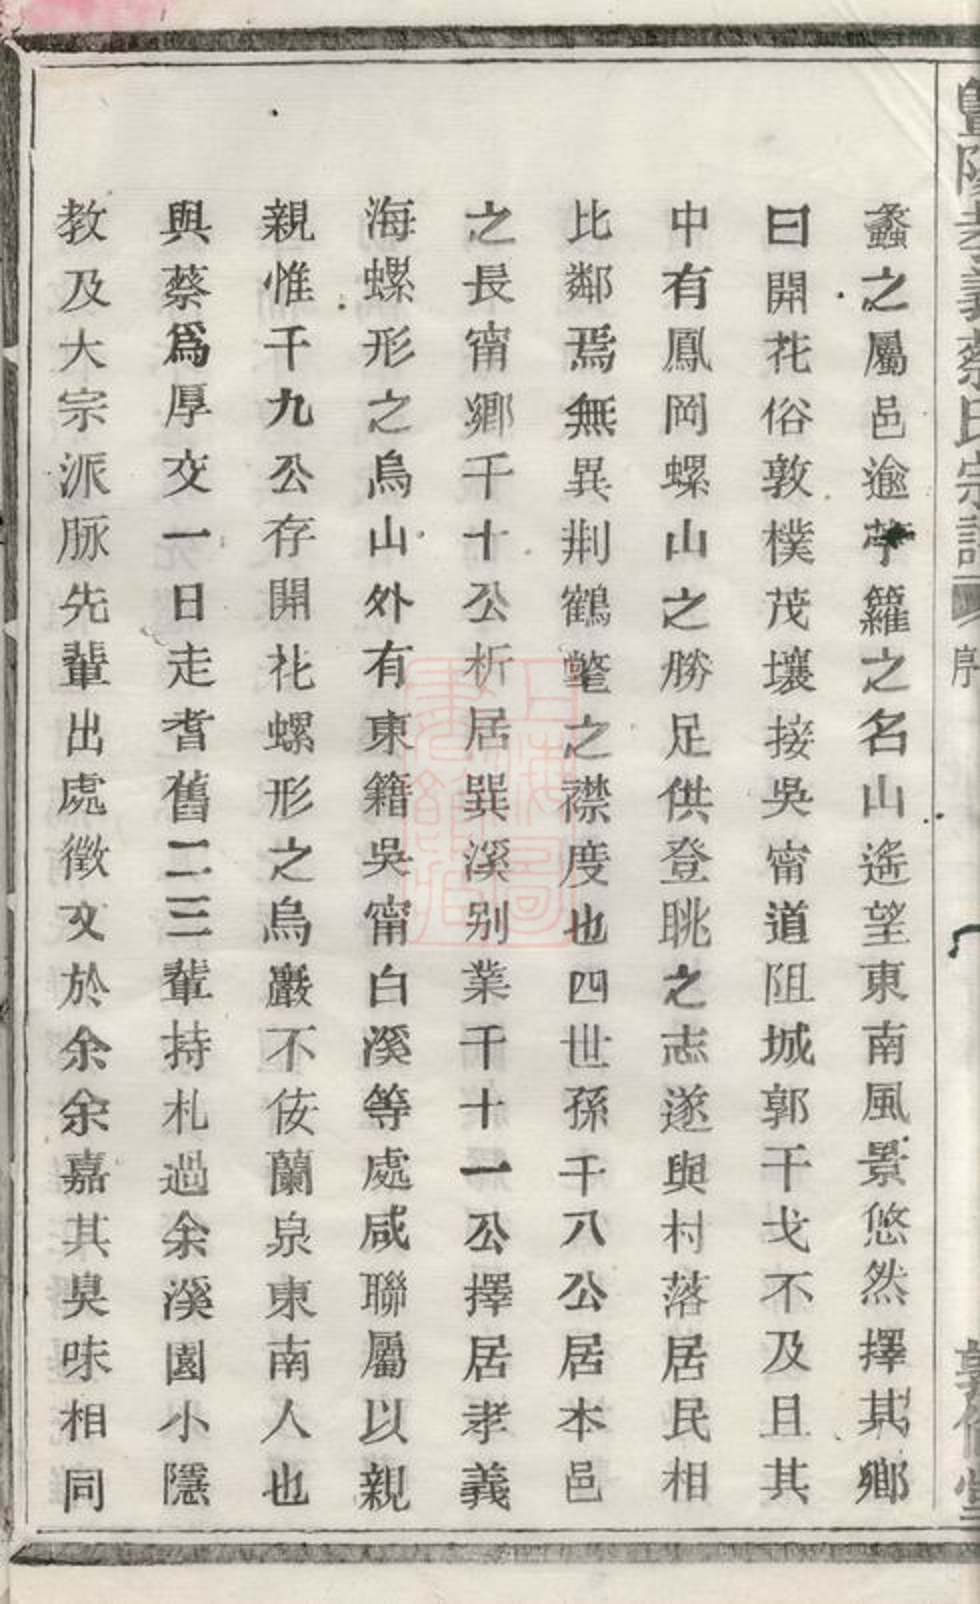 暨陽孝義蔡氏宗譜 序 敦倫堂
蠡之屬邑逾苧籮之名山遙望東南風景悠然擇其鄉
曰開花俗敦樸茂壤接吳甯道阻城郭干戈不及且其
中有鳳岡螺山之勝足供登眺之志遂與村落居民相
比鄰焉無異荆鶴氅之襟度也四世孫千八公居本邑
之長甯鄉千十公析居巽溪别業千十一公擇居孝義
海螺形之烏山外有東籍吳甯白溪等處咸聯屬以親
親惟千九公存開花螺形之烏巖不侫蘭泉東南人也
與蔡爲厚交一日走耆舊二三輩持札過余溪園小隱
教及大宗派脉先輩出處徵文於余余嘉其臭味相同
上海圖書館藏